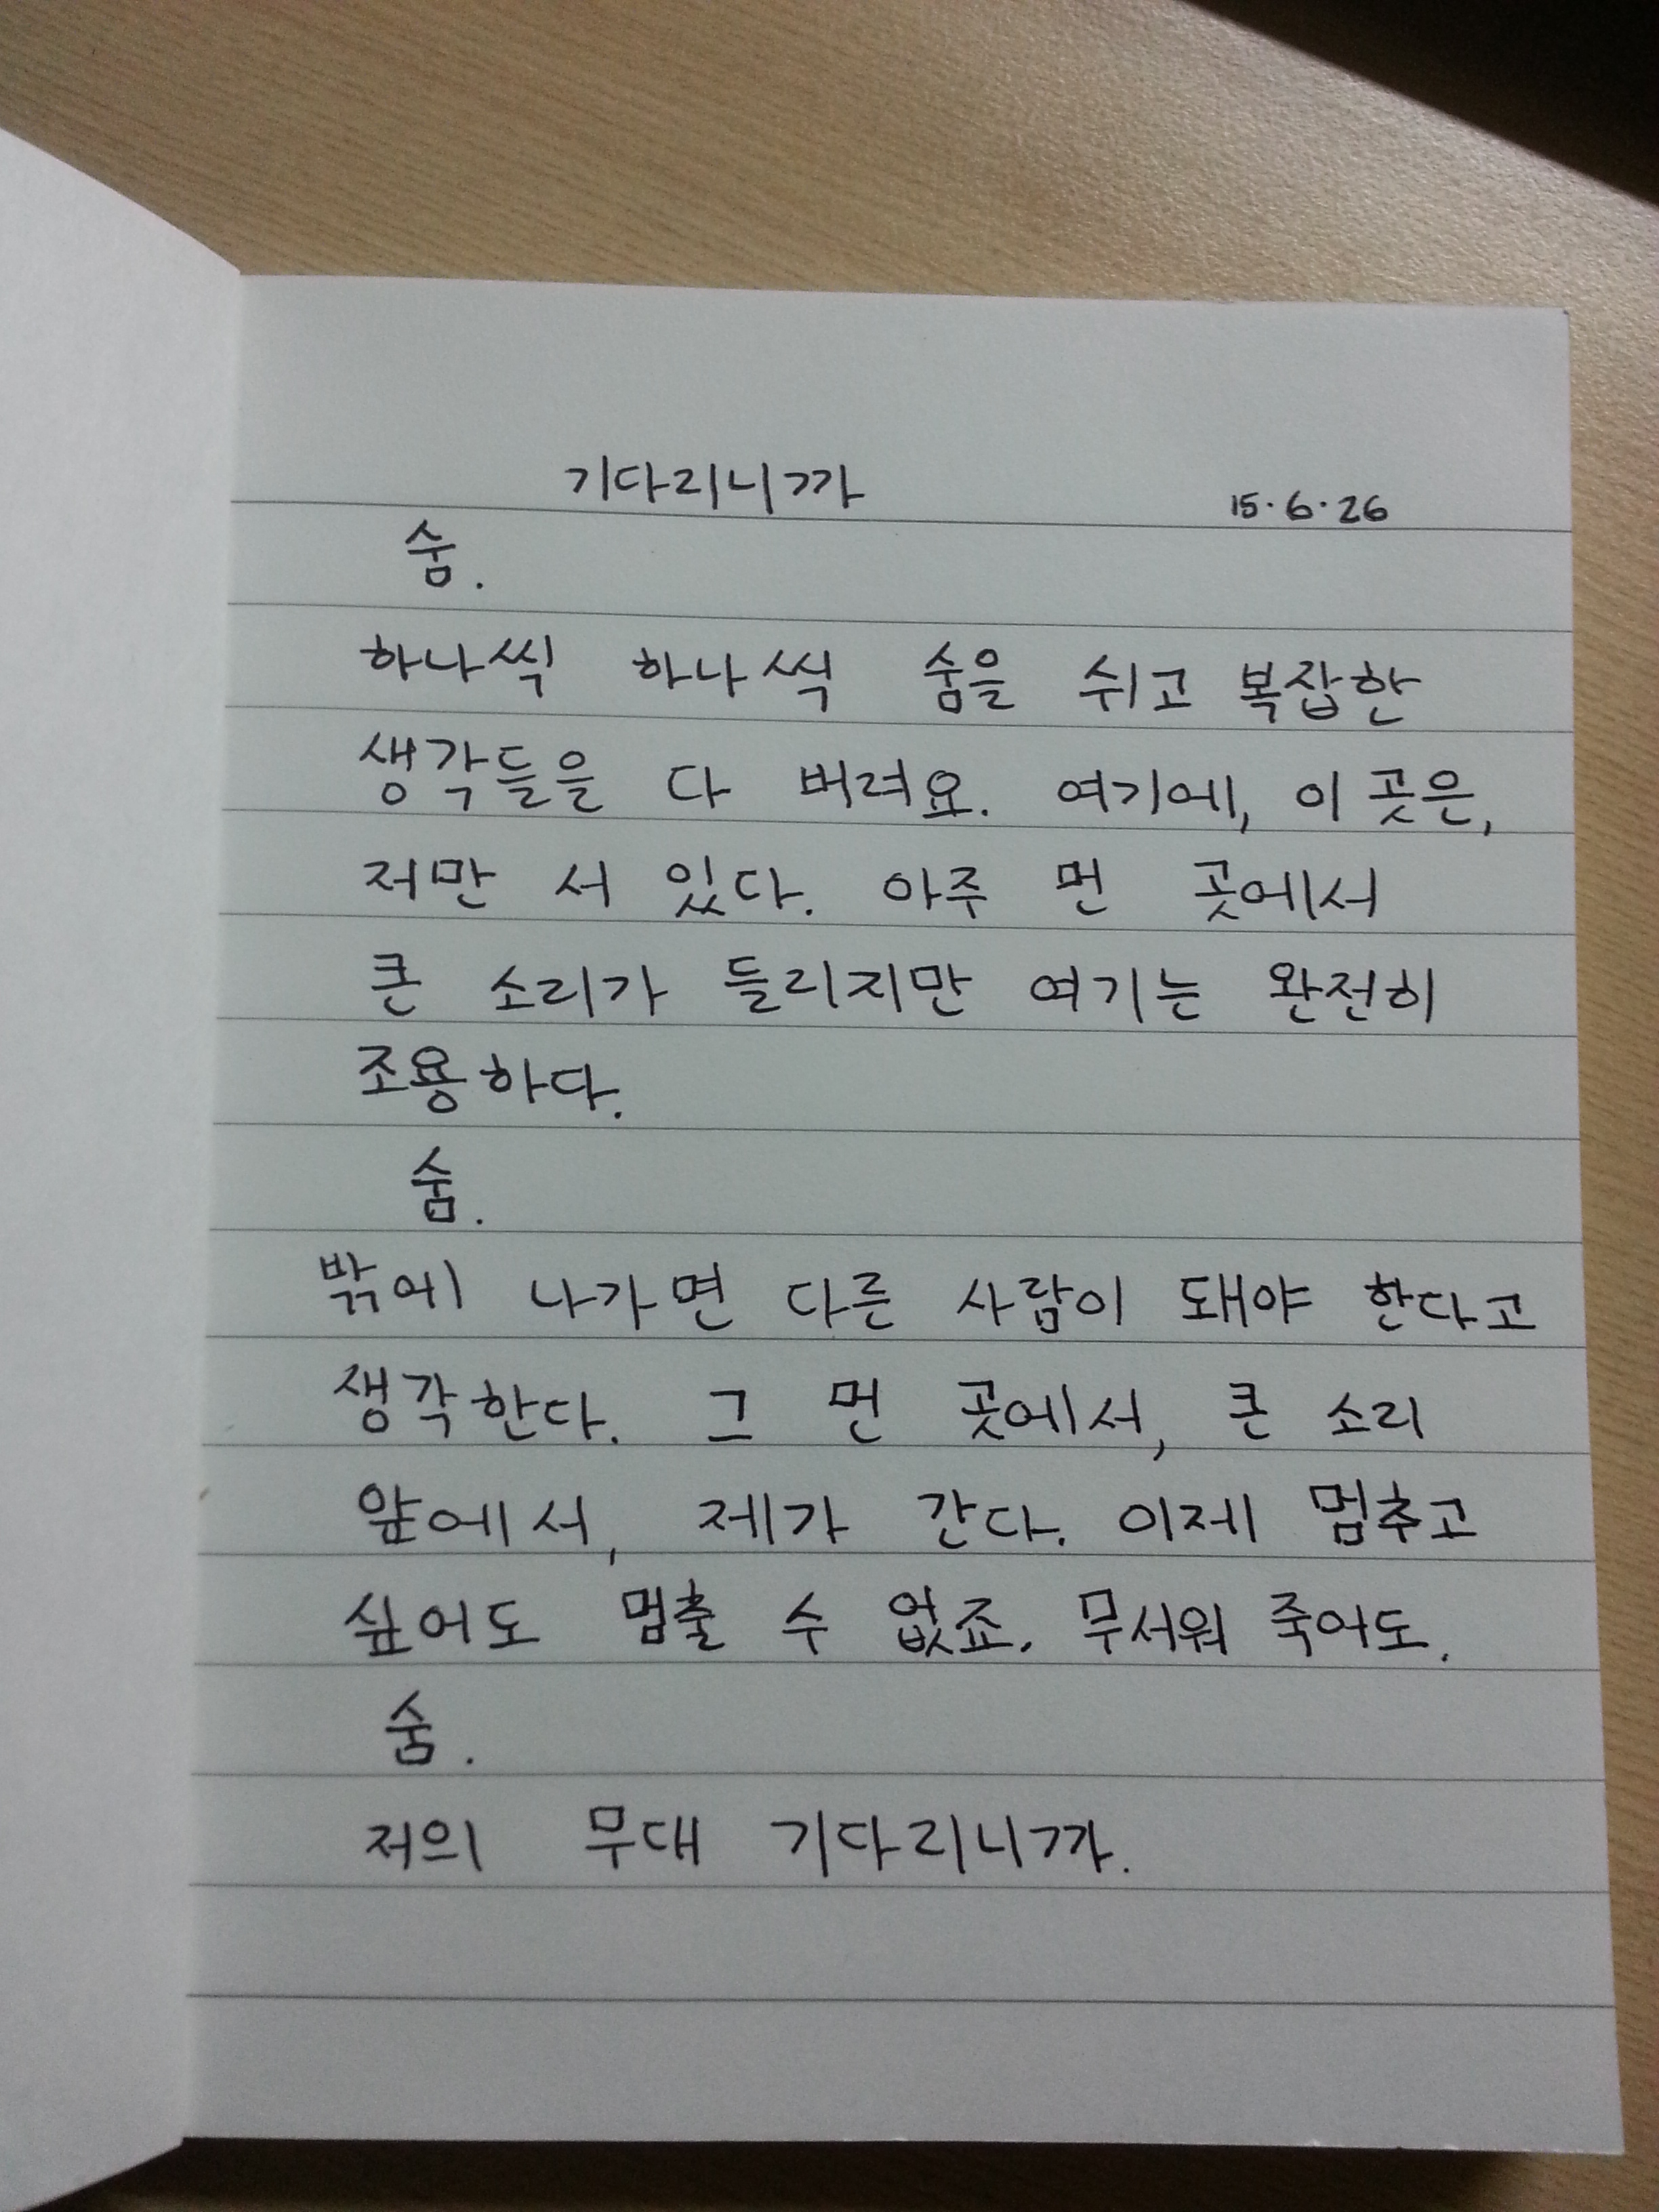 기다리니까 15.6.26
숨.
하나씩 하나씩 숨을 쉬고 복잡한
생각들을 다 버려요. 여기에, 이 곳은,
저만 서 있다. 아주 먼 곳에서
큰 소리가 들리지만 여기는 완전히
조용하다.
숨.
밖에 나가면 다른 사람이 돼야 한다고
생각한다. 그 먼 곳에서, 큰 소리
앞에서, 제가 간다. 이제 멈추고
싶어도 멈출 수 없죠. 무서워 죽어도.
숨.
저의 무대 기다리니까.